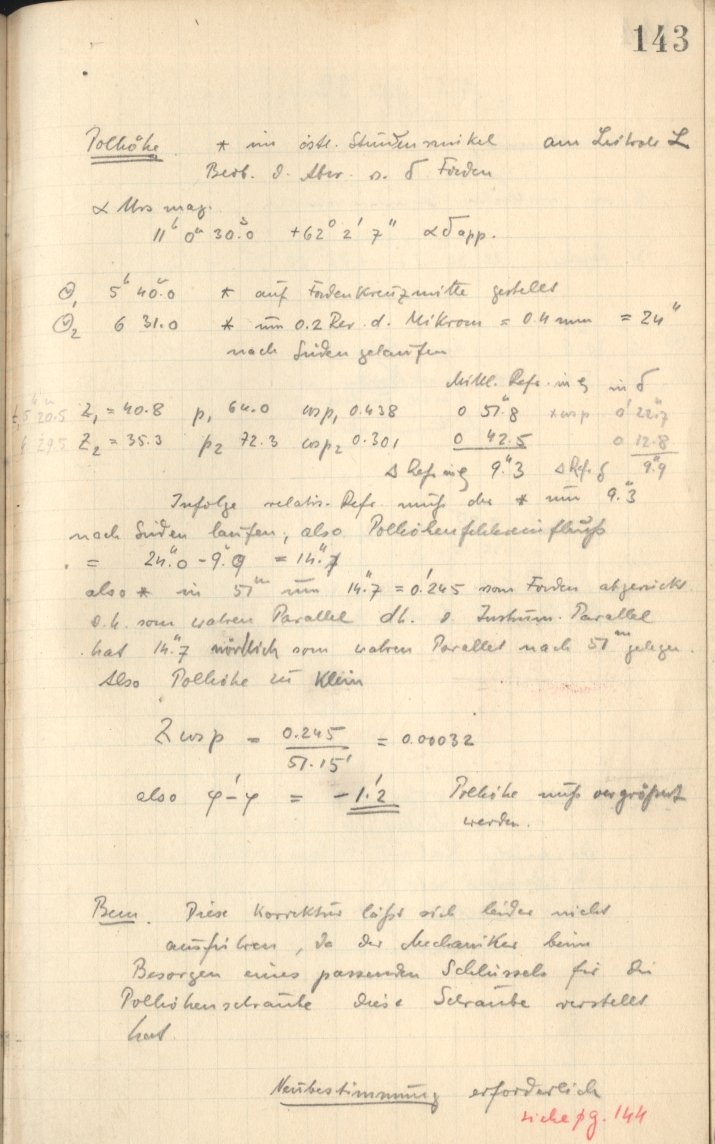 143
Polhöhe * im östl. Stundenwinkel am Leitrohr L
Beob. d. Abw. v. δ Faden
α Urs maj.
11ʰ 0ᵐ 30.ˢ0 +62° 2' 7" αδ app.
Θ₁ 5ʰ 40.ᵐ0 * auf Fadenkreuzmitte gestellt
Θ₂ 6 31.0 * um 0.2 Rev. d. Mikrom = 0.4 mm = 24"
nach Süden gelaufen
Mittl. Refr. in z in δ
t₁ 5ʰ 20.ᵐ5 Z₁ = 40.8 p₁ 64.0 cosp₁ 0.438 0 51."8 × cosp 0' 22."7
6 29.5 Z₂ = 35.3 p₂ 72.3 cosp₂ 0.301 0 42.5 0 12.8
Δ Refr in z 9."3 Δ Refr δ 9."9
Infolge relativ. Refr. muß der * um 9."3
nach Süden laufen, also Polhöhenfehlereinfluß
= 24."0 - 9."9 = 14."7
also * in 51ᵐ um 14."7 = 0.'245 vom Faden abgerückt
d.h. vom wahren Parallel dh. d. Instrum. Parallel
hat 14."7 nördlich vom wahren Parallel nach 51ᵐ gelegen.
Also Polhöhe zu klein
Z cos p = 0.245 / 51.15' = 0.00032
also φ'-φ = -1.'2 Polhöhe muß vergrößert
werden.
Bem. Diese Korrektur läßt sich leider nicht
ausführen, da der Mechaniker beim
Besorgen eines passenden Schlüssels für die
Polhöhenschraube diese Schraube verstellt
hat.
Neubestimmung erforderlich
siehe pg. 144